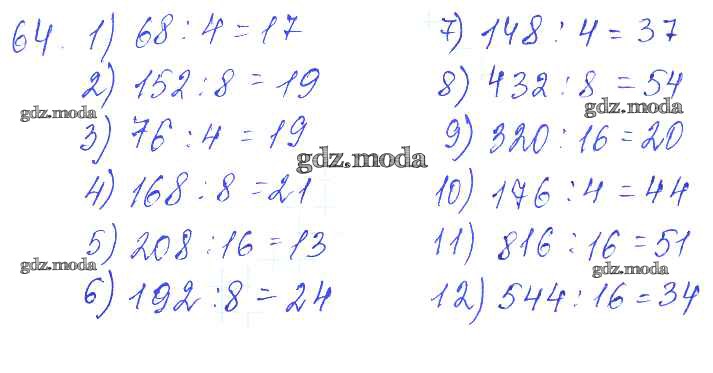 64. 1) 68 : 4 = 17
2) 152 : 8 = 19
gdz.moda
3) 76 : 4 = 19
4) 168 : 8 = 21
5) 208 : 16 = 13
gdz.moda
6) 192 : 8 = 24
gdz.moda
7) 148 : 4 = 37
8) 432 : 8 = 54
gdz.moda
9) 320 : 16 = 20
10) 176 : 4 = 44
11) 816 : 16 = 51
gdz.moda
12) 544 : 16 = 34